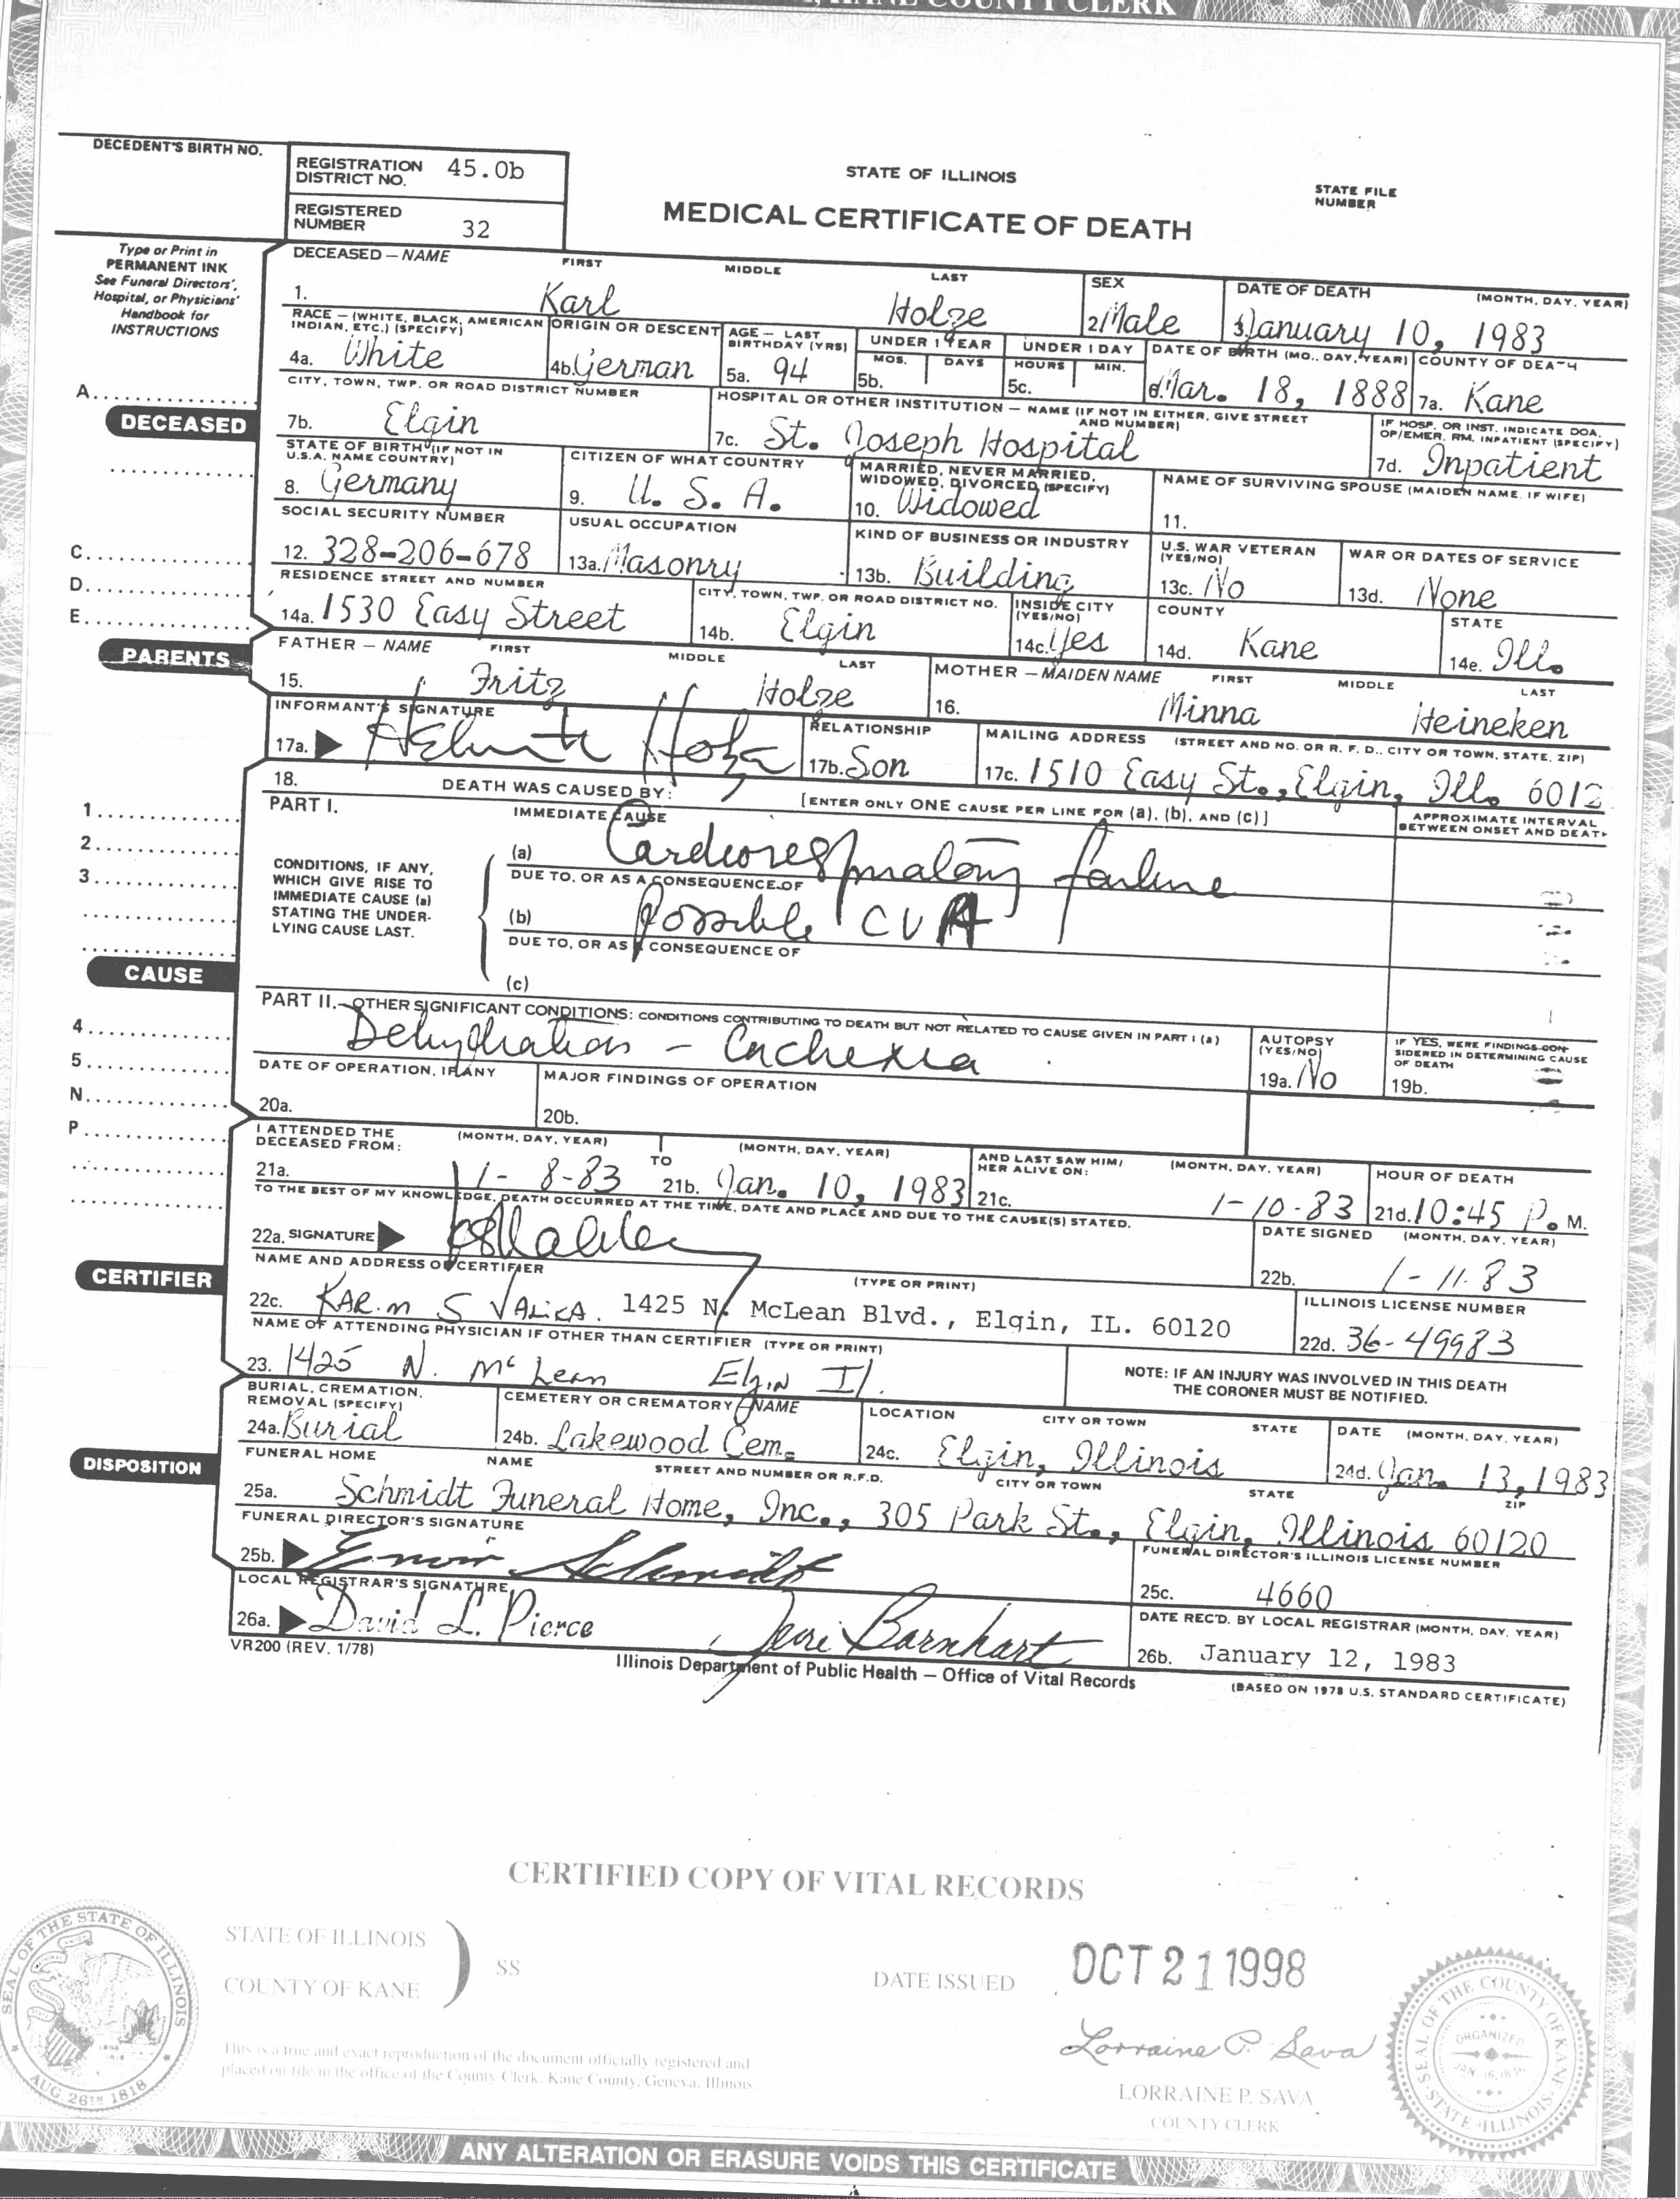 KANE COUNTY CLERK
DECEDENT'S BIRTH NO.
REGISTRATION DISTRICT NO. 45.0b
REGISTERED NUMBER 32
STATE OF ILLINOIS
STATE FILE NUMBER
MEDICAL CERTIFICATE OF DEATH
Type or Print in
PERMANENT INK
See Funeral Directors',
Hospital, or Physicians'
Handbook for
INSTRUCTIONS
DECEASED — NAME FIRST MIDDLE LAST SEX DATE OF DEATH (MONTH, DAY, YEAR)
1. Karl Holze 2 Male 3 January 10, 1983
RACE — (WHITE, BLACK, AMERICAN INDIAN, ETC.) (SPECIFY) ORIGIN OR DESCENT AGE — LAST BIRTHDAY (YRS) UNDER 1 YEAR MOS. DAYS UNDER 1 DAY HOURS MIN. DATE OF BIRTH (MO., DAY, YEAR) COUNTY OF DEATH
4a. White 4b. German 5a. 94 5b. 5c. 6. Mar. 18, 1888 7a. Kane
A.
DECEASED
CITY, TOWN, TWP. OR ROAD DISTRICT NUMBER HOSPITAL OR OTHER INSTITUTION — NAME (IF NOT IN EITHER, GIVE STREET AND NUMBER) IF HOSP. OR INST. INDICATE DOA, OP/EMER. RM. INPATIENT (SPECIFY)
7b. Elgin 7c. St. Joseph Hospital 7d. Inpatient
STATE OF BIRTH (IF NOT IN U.S.A. NAME COUNTRY) CITIZEN OF WHAT COUNTRY MARRIED, NEVER MARRIED, WIDOWED, DIVORCED (SPECIFY) NAME OF SURVIVING SPOUSE (MAIDEN NAME, IF WIFE)
8. Germany 9. U. S. A. 10. Widowed 11.
SOCIAL SECURITY NUMBER USUAL OCCUPATION KIND OF BUSINESS OR INDUSTRY U.S. WAR VETERAN (YES/NO) WAR OR DATES OF SERVICE
12. 328-206-678 13a. Masonry 13b. Building 13c. No 13d. None
C.
D.
E.
RESIDENCE STREET AND NUMBER CITY, TOWN, TWP. OR ROAD DISTRICT NO. INSIDE CITY (YES/NO) COUNTY STATE
14a. 1530 Easy Street 14b. Elgin 14c. Yes 14d. Kane 14e. Ill.
PARENTS
FATHER — NAME FIRST MIDDLE LAST MOTHER — MAIDEN NAME FIRST MIDDLE LAST
15. Fritz Holze 16. Minna Heineken
INFORMANT'S SIGNATURE RELATIONSHIP MAILING ADDRESS (STREET AND NO. OR R. F. D., CITY OR TOWN, STATE, ZIP)
17a. Helmuth Holze 17b. Son 17c. 1510 Easy St., Elgin, Ill. 6012
18. DEATH WAS CAUSED BY: [ENTER ONLY ONE CAUSE PER LINE FOR (a), (b), AND (c)]
PART I. IMMEDIATE CAUSE APPROXIMATE INTERVAL BETWEEN ONSET AND DEATH
1.
2.
3.
CONDITIONS, IF ANY,
WHICH GIVE RISE TO
IMMEDIATE CAUSE (a)
STATING THE UNDER-
LYING CAUSE LAST.
(a) Cardiorespiratory failure
DUE TO, OR AS A CONSEQUENCE OF
(b) Possible CVA
DUE TO, OR AS A CONSEQUENCE OF
(c)
CAUSE
PART II. OTHER SIGNIFICANT CONDITIONS: CONDITIONS CONTRIBUTING TO DEATH BUT NOT RELATED TO CAUSE GIVEN IN PART I (a) AUTOPSY (YES/NO) IF YES, WERE FINDINGS CONSIDERED IN DETERMINING CAUSE OF DEATH
Dehydration - Cachexia 19a. No 19b.
4.
5.
N.
P.
DATE OF OPERATION, IF ANY MAJOR FINDINGS OF OPERATION
20a. 20b.
I ATTENDED THE DECEASED FROM: (MONTH, DAY, YEAR) TO (MONTH, DAY, YEAR) AND LAST SAW HIM/HER ALIVE ON: (MONTH, DAY, YEAR) HOUR OF DEATH
21a. 1-8-83 21b. Jan. 10, 1983 21c. 1-10-83 21d. 10:45 P. M.
TO THE BEST OF MY KNOWLEDGE, DEATH OCCURRED AT THE TIME, DATE AND PLACE AND DUE TO THE CAUSE(S) STATED. DATE SIGNED (MONTH, DAY, YEAR)
22a. SIGNATURE 22b. 1-11-83
CERTIFIER
NAME AND ADDRESS OF CERTIFIER (TYPE OR PRINT) ILLINOIS LICENSE NUMBER
22c. KARIM S VALIKA. 1425 N. McLean Blvd., Elgin, IL. 60120 22d. 36-49983
NAME OF ATTENDING PHYSICIAN IF OTHER THAN CERTIFIER (TYPE OR PRINT)
23. 1425 N. McLean Elgin Il.
NOTE: IF AN INJURY WAS INVOLVED IN THIS DEATH
THE CORONER MUST BE NOTIFIED.
BURIAL, CREMATION, REMOVAL (SPECIFY) CEMETERY OR CREMATORY — NAME LOCATION CITY OR TOWN STATE DATE (MONTH, DAY, YEAR)
24a. Burial 24b. Lakewood Cem. 24c. Elgin, Illinois 24d. Jan. 13, 1983
DISPOSITION
FUNERAL HOME NAME STREET AND NUMBER OR R.F.D. CITY OR TOWN STATE ZIP
25a. Schmidt Funeral Home, Inc., 305 Park St., Elgin, Illinois 60120
FUNERAL DIRECTOR'S SIGNATURE FUNERAL DIRECTOR'S ILLINOIS LICENSE NUMBER
25b. Schmidt 25c. 4660
LOCAL REGISTRAR'S SIGNATURE DATE REC'D. BY LOCAL REGISTRAR (MONTH, DAY, YEAR)
26a. David L. Pierce Jeri Barnhart 26b. January 12, 1983
VR200 (REV. 1/78) Illinois Department of Public Health — Office of Vital Records (BASED ON 1978 U.S. STANDARD CERTIFICATE)
CERTIFIED COPY OF VITAL RECORDS
STATE OF ILLINOIS
SS
COUNTY OF KANE
DATE ISSUED OCT 21 1998
This is a true and exact reproduction of the document officially registered and
placed on file in the office of the County Clerk, Kane County, Geneva, Illinois.
Lorraine P. Sava
LORRAINE P. SAVA
COUNTY CLERK
SEAL OF THE STATE OF ILLINOIS
AUG 26TH 1818
SEAL OF THE COUNTY OF KANE
STATE ILLINOIS
ORGANIZED
JAN. 16, 1836
ANY ALTERATION OR ERASURE VOIDS THIS CERTIFICATE